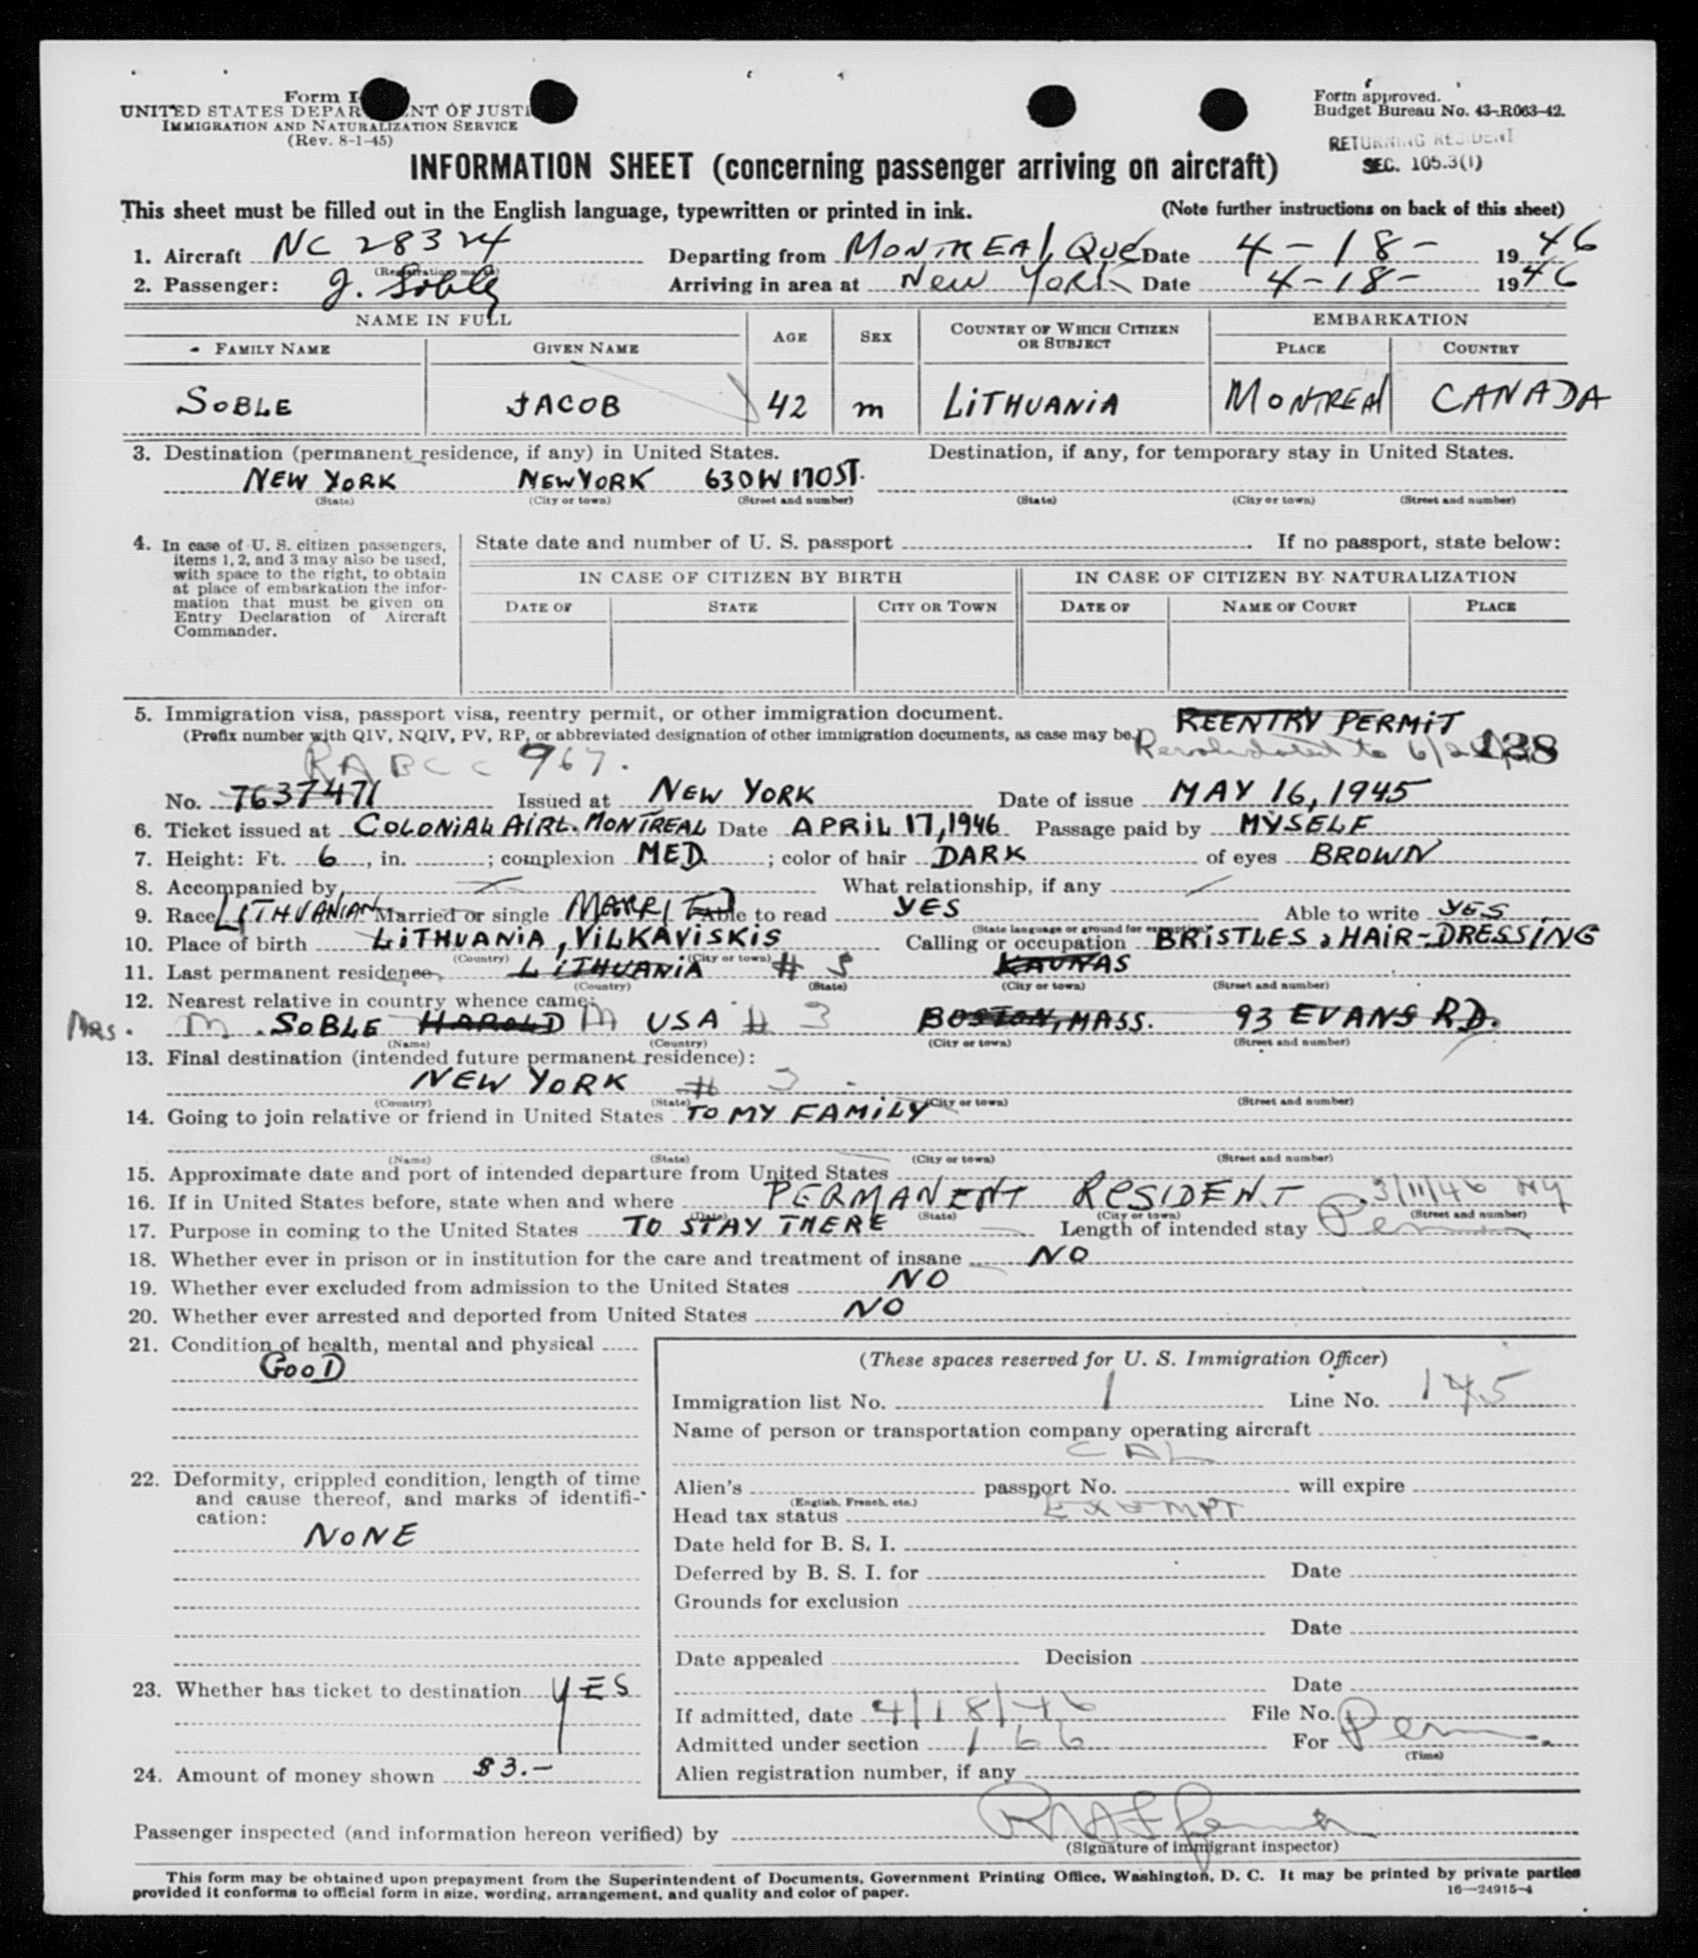 Form I-
UNITED STATES DEPAR NT OF JUSTI
IMMIGRATION AND NATURALIZATION SERVICE
(Rev. 8-1-45)
Form approved.
Budget Bureau No. 43-R063-42.
RETURNING RESIDENT
SEC. 105.3(1)
INFORMATION SHEET (concerning passenger arriving on aircraft)
This sheet must be filled out in the English language, typewritten or printed in ink. (Note further instructions on back of this sheet)
1. Aircraft NC 28324 Departing from MONTREAL, QUE Date 4-18- 1946
(Registration marks)
2. Passenger: J. Soble Arriving in area at New York Date 4-18- 1946
NAME IN FULL AGE SEX COUNTRY OF WHICH CITIZEN OR SUBJECT EMBARKATION
FAMILY NAME GIVEN NAME PLACE COUNTRY
SOBLE JACOB 42 m LITHUANIA MONTREAL CANADA
3. Destination (permanent residence, if any) in United States. Destination, if any, for temporary stay in United States.
NEW YORK NEW YORK 630 W 170 ST.
(State) (City or town) (Street and number) (State) (City or town) (Street and number)
4. In case of U. S. citizen passengers, items 1, 2, and 3 may also be used, with space to the right, to obtain at place of embarkation the information that must be given on Entry Declaration of Aircraft Commander.
State date and number of U. S. passport If no passport, state below:
IN CASE OF CITIZEN BY BIRTH IN CASE OF CITIZEN BY NATURALIZATION
DATE OF STATE CITY OR TOWN DATE OF NAME OF COURT PLACE
5. Immigration visa, passport visa, reentry permit, or other immigration document. REENTRY PERMIT
(Prefix number with QIV, NQIV, PV, RP, or abbreviated designation of other immigration documents, as case may be.) Revalidated to 128
967.
No. 7637471 Issued at NEW YORK Date of issue MAY 16, 1945
6. Ticket issued at COLONIAL AIRL. MONTREAL Date APRIL 17, 1946 Passage paid by MYSELF
7. Height: Ft. 6, in. ; complexion MED. ; color of hair DARK of eyes BROWN
8. Accompanied by What relationship, if any
9. Race LITHUANIAN Married or single MARRIED Able to read YES Able to write YES
(State language or ground for exemption)
10. Place of birth LITHUANIA, VILKAVISKIS Calling or occupation BRISTLES & HAIR-DRESSING
(Country) (City or town)
11. Last permanent residence LITHUANIA # 3 KAUNAS
(Country) (State) (City or town) (Street and number)
12. Nearest relative in country whence came:
Mrs. M. SOBLE HAROLD M USA # 3 BOSTON, MASS. 93 EVANS RD.
(Name) (Country) (City or town) (Street and number)
13. Final destination (intended future permanent residence):
NEW YORK # 3
(Country) (State) (City or town) (Street and number)
14. Going to join relative or friend in United States TO MY FAMILY
(Name) (State) (City or town) (Street and number)
15. Approximate date and port of intended departure from United States
16. If in United States before, state when and where PERMANENT RESIDENT 3/11/46 NY
(Date) (State) (City or town) (Street and number)
17. Purpose in coming to the United States TO STAY THERE Length of intended stay Perm
18. Whether ever in prison or in institution for the care and treatment of insane NO
19. Whether ever excluded from admission to the United States NO
20. Whether ever arrested and deported from United States NO
21. Condition of health, mental and physical
GOOD
22. Deformity, crippled condition, length of time and cause thereof, and marks of identification:
NONE
23. Whether has ticket to destination YES
24. Amount of money shown $3.-
(These spaces reserved for U. S. Immigration Officer)
Immigration list No. 1 Line No. 145
Name of person or transportation company operating aircraft
CAL
Alien's passport No. will expire
(English, French, etc.)
Head tax status EXEMPT
Date held for B. S. I.
Deferred by B. S. I. for Date
Grounds for exclusion
Date
Date appealed Decision
Date
If admitted, date 4/18/46 File No.
Admitted under section 166 For Perm
(Time)
Alien registration number, if any
Passenger inspected (and information hereon verified) by
(Signature of immigrant inspector)
This form may be obtained upon prepayment from the Superintendent of Documents, Government Printing Office, Washington, D. C. It may be printed by private parties
provided it conforms to official form in size, wording, arrangement, and quality and color of paper. 16—24915-4